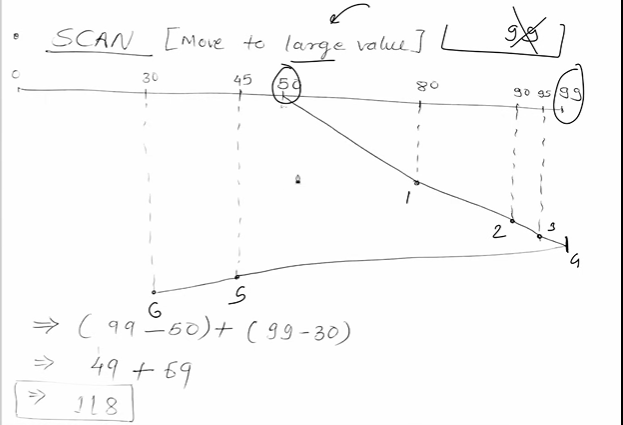 • SCAN [Move to large value] [ 99 ]
0 30 45 50 80 90 95 99
1
2 3
4
5
6
⇒ (99-50)+(99-30)
⇒ 49+69
⇒ 118